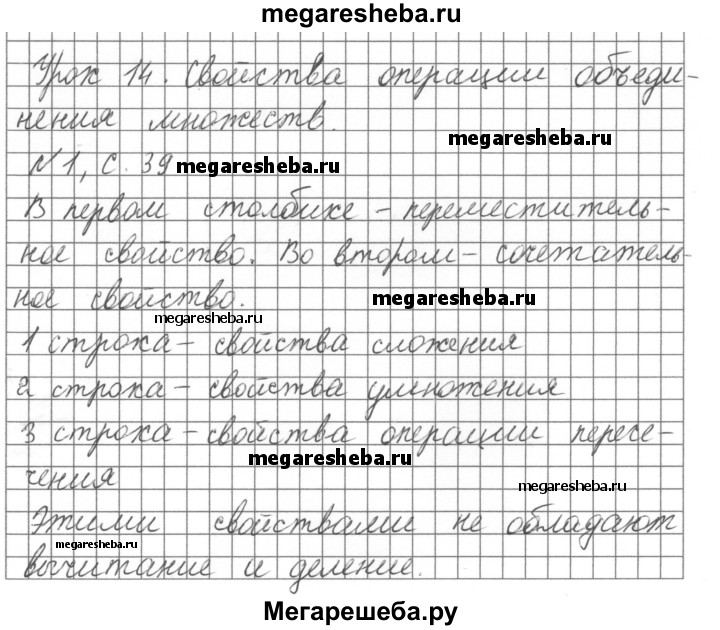 megaresheba.ru
Урок 14. Свойства операции объеди-
нения множеств.
megaresheba.ru
№1, с. 39 megaresheba.ru
В первом столбике - переместитель-
ное свойство. Во втором - сочетатель-
ное свойство.
megaresheba.ru
megaresheba.ru
1 строка - свойства сложения
2 строка - свойства умножения
3 строка - свойства операции пересе-
megaresheba.ru
чения
megaresheba.ru
Этими свойствами не обладают
megaresheba.ru
вычитание и деление.
Мегарешеба.ру